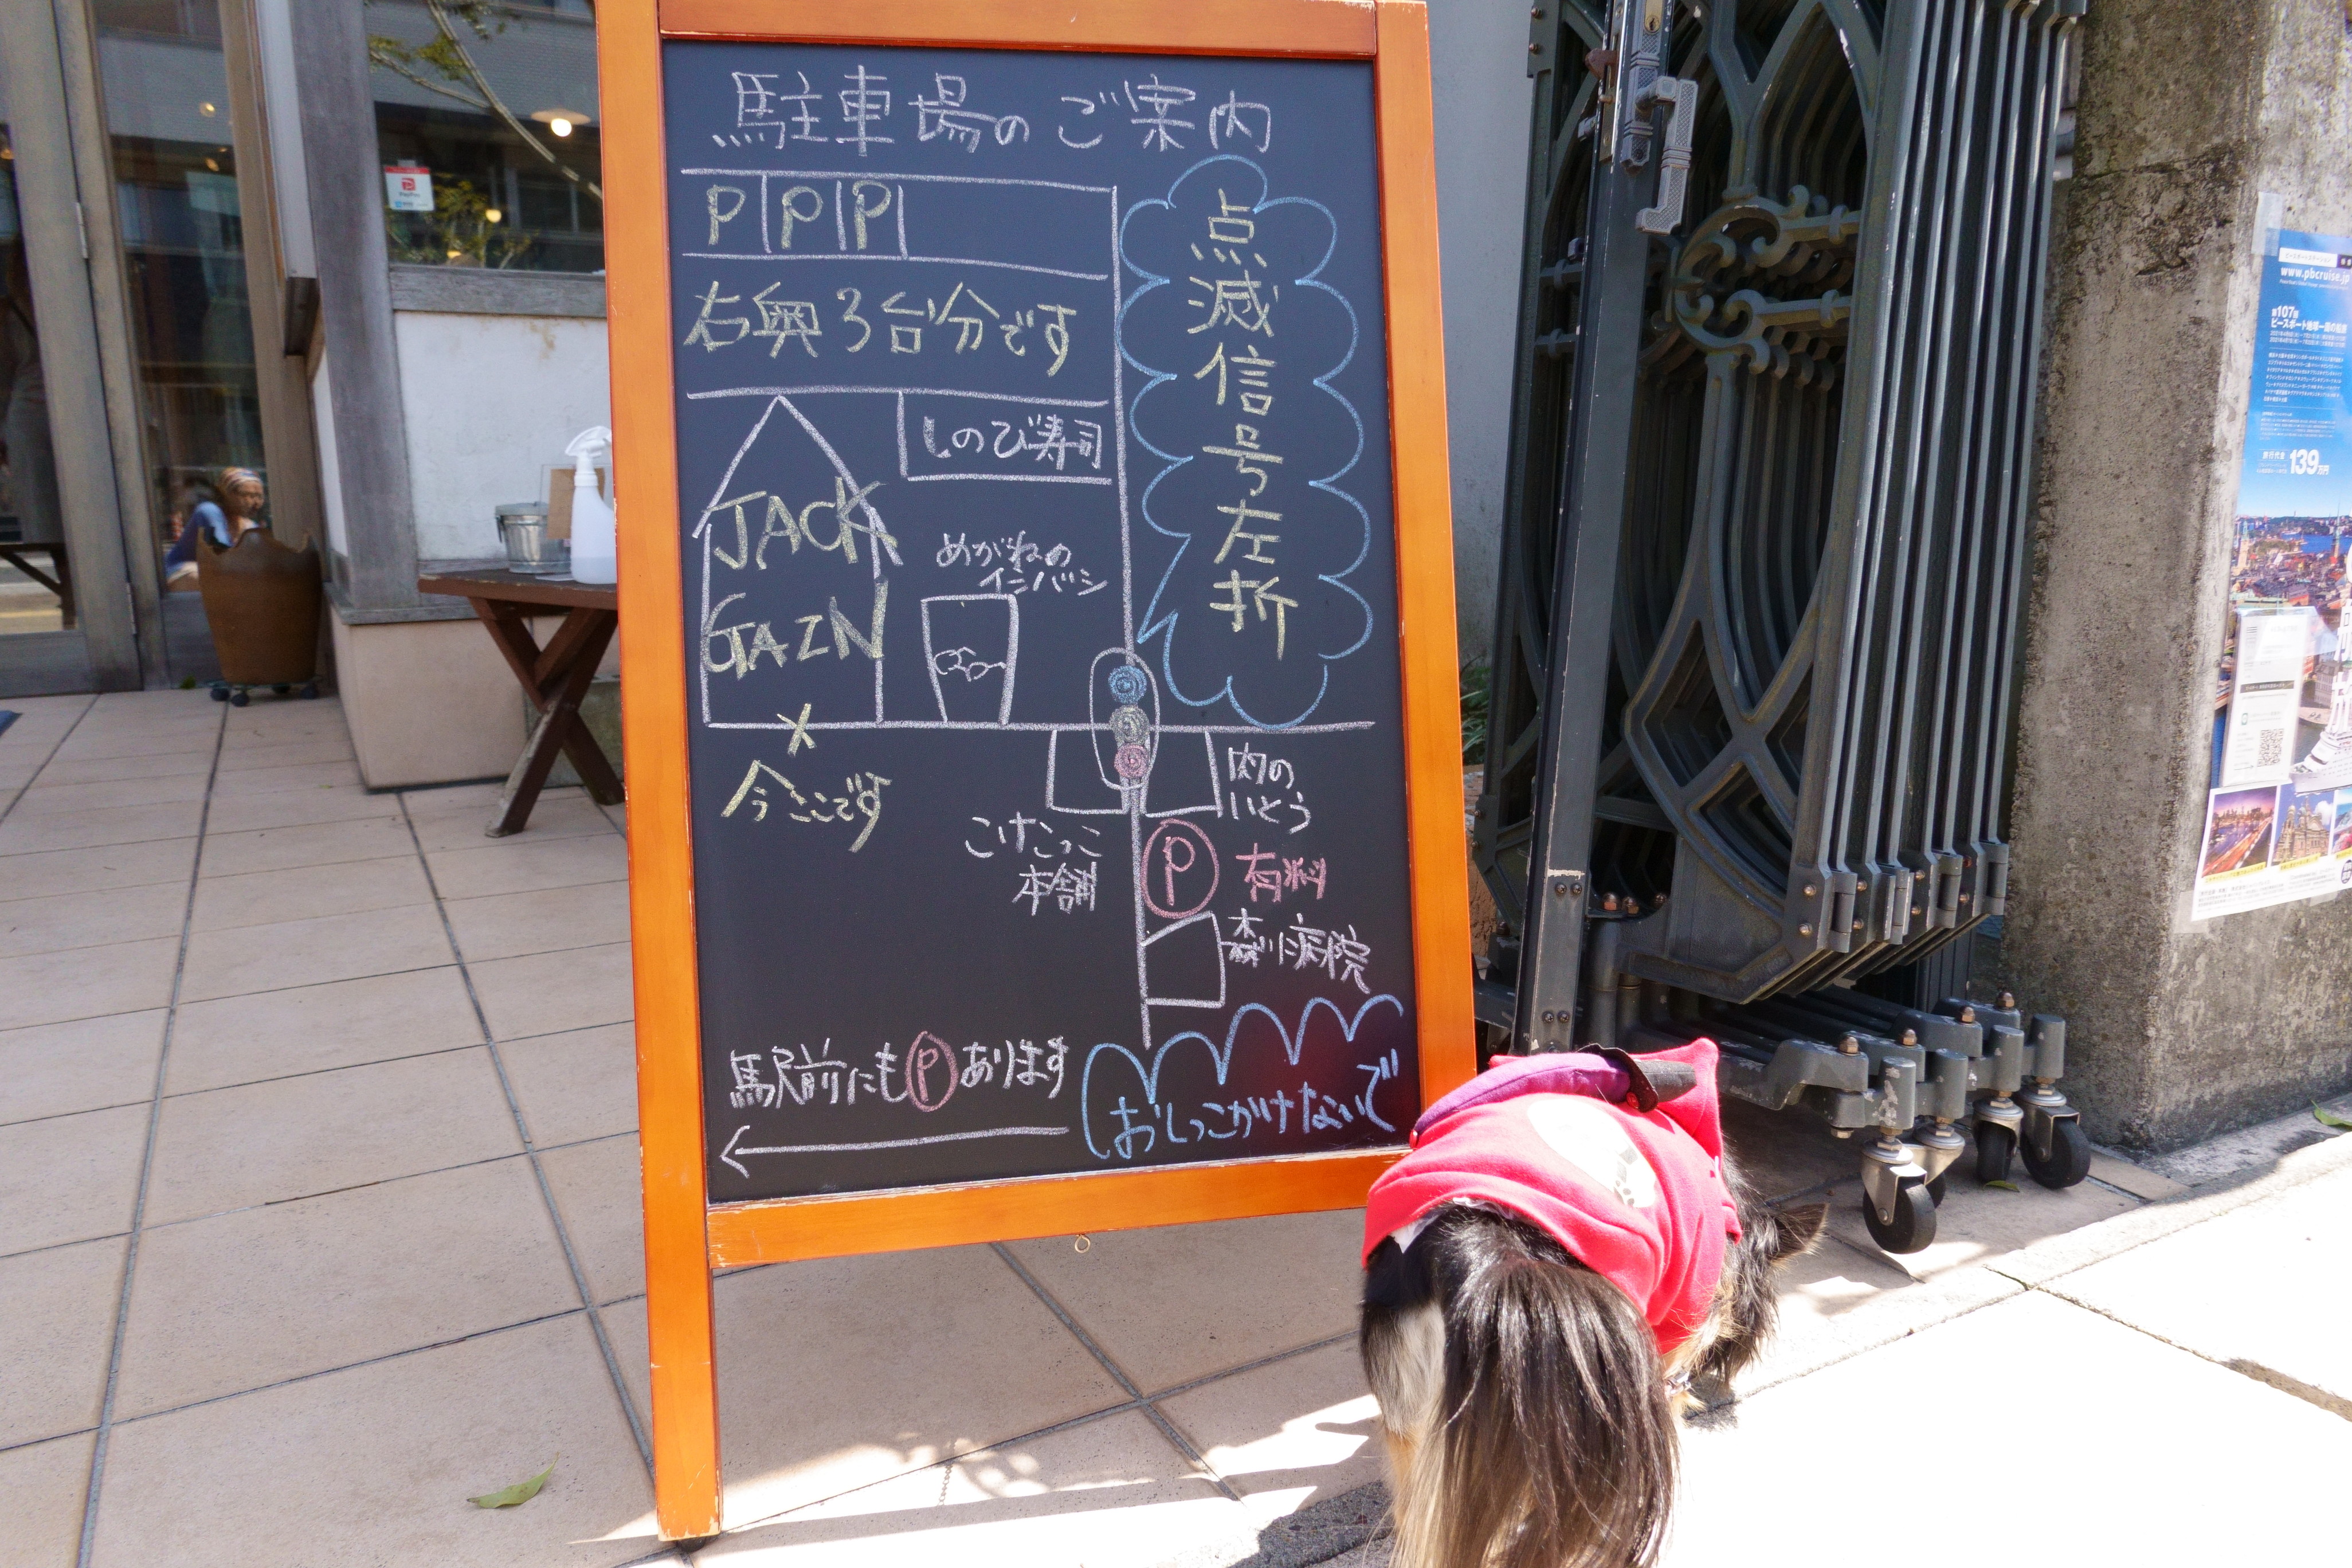 駐車場のご案内
P P P
右奥3台分です
点滅信号左折
しのび寿司
JACK
GAZN
めがねの
イシバシ
今ここです
肉の
いとう
こけこっこ
本舗
P 有料
森川病院
駅前にもPあります
おしっこかけないで
www.pbcruise.jp
第107回
ピースボート地球一周の船旅
139万円